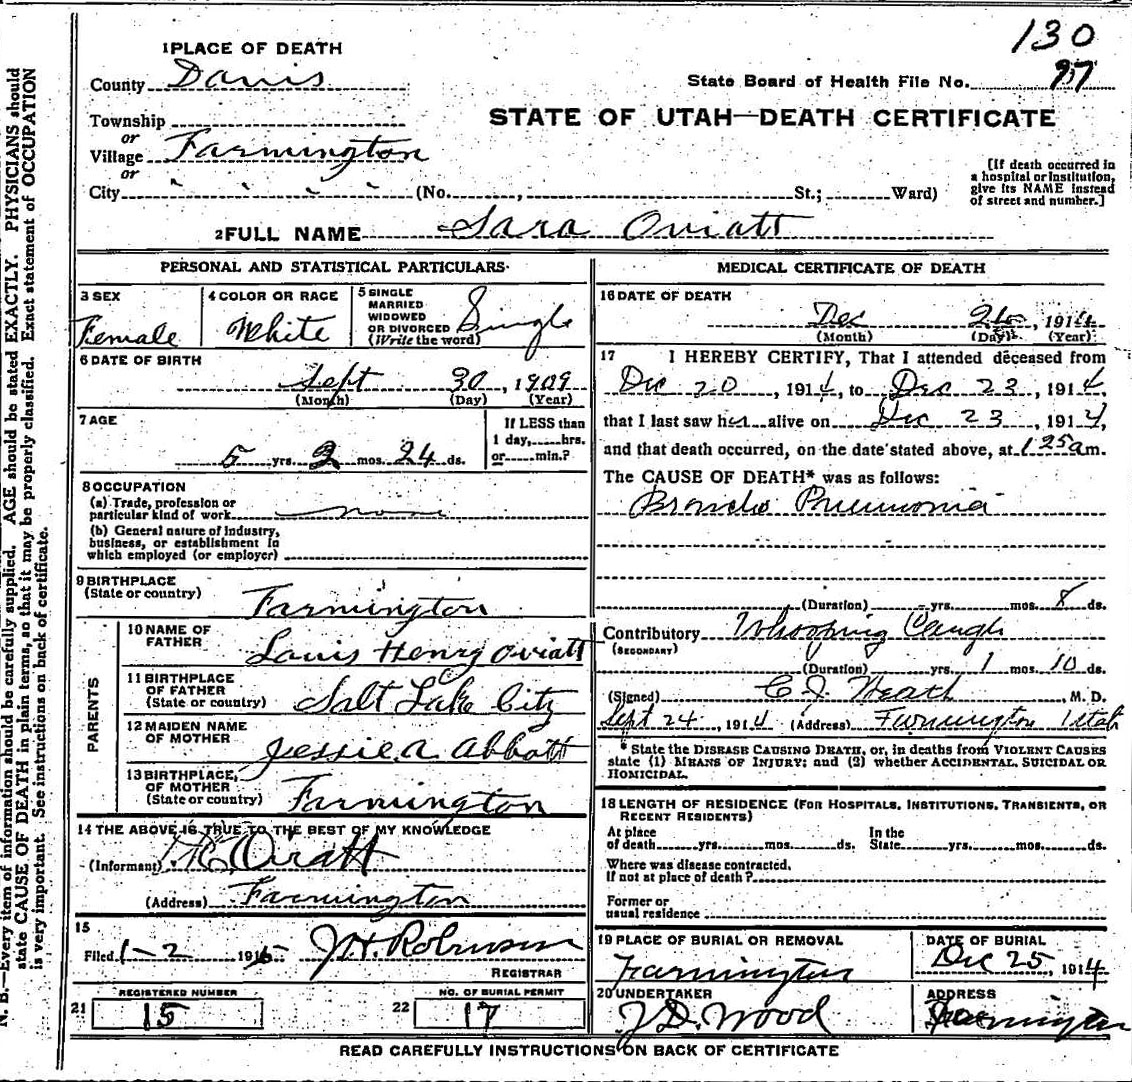 130
1 PLACE OF DEATH
County Davis
State Board of Health File No. 97
Township
STATE OF UTAH—DEATH CERTIFICATE
or
Village Farmington
or
City (No. St.; Ward)
[If death occurred in
a hospital or institution,
give its NAME instead
of street and number.]
2 FULL NAME Sara Oviatt
PERSONAL AND STATISTICAL PARTICULARS
3 SEX
Female
4 COLOR OR RACE
White
5 SINGLE
MARRIED
WIDOWED
OR DIVORCED
(Write the word)
Single
6 DATE OF BIRTH
Sept 30, 1909
(Month) (Day) (Year)
7 AGE
5 yrs. 2 mos. 24 ds.
If LESS than
1 day, hrs.
or min.?
8 OCCUPATION
(a) Trade, profession or
particular kind of work none
(b) General nature of industry,
business, or establishment in
which employed (or employer)
9 BIRTHPLACE
(State or country)
Farmington
PARENTS
10 NAME OF
FATHER
Louis Henry Oviatt
11 BIRTHPLACE
OF FATHER
(State or country)
Salt Lake City
12 MAIDEN NAME
OF MOTHER
Jessie A Abbott
13 BIRTHPLACE,
OF MOTHER
(State or country)
Farmington
14 THE ABOVE IS TRUE TO THE BEST OF MY KNOWLEDGE
(Informant) Oviatt
(Address) Farmington
15
Filed 1-2 1915 J H Robinson
REGISTRAR
21 REGISTERED NUMBER
15
22 NO. OF BURIAL PERMIT
17
MEDICAL CERTIFICATE OF DEATH
16 DATE OF DEATH
Dec , 1914
(Month) (Day) (Year)
17 I HEREBY CERTIFY, That I attended deceased from
Dec 20, 1914, to Dec 23, 1914,
that I last saw her alive on Dec 23, 1914,
and that death occurred, on the date stated above, at 1 25 a m.
The CAUSE OF DEATH* was as follows:
Broncho Pneumonia
(Duration) yrs. mos. 8 ds.
Contributory Whooping Cough
(SECONDARY)
(Duration) yrs. 1 mos. 10 ds.
(Signed) C J Heath, M. D.
Sept 24, 1914 (Address) Farmington Utah
* State the DISEASE CAUSING DEATH, or, in deaths from VIOLENT CAUSES
state (1) MEANS OF INJURY; and (2) whether ACCIDENTAL, SUICIDAL OR
HOMICIDAL.
18 LENGTH OF RESIDENCE (FOR HOSPITALS, INSTITUTIONS, TRANSIENTS, OR
RECENT RESIDENTS)
At place
of death yrs. mos. ds.
In the
State yrs. mos. ds.
Where was disease contracted,
If not at place of death?
Former or
usual residence
19 PLACE OF BURIAL OR REMOVAL
Farmington
DATE OF BURIAL
Dec 25, 1914
20 UNDERTAKER
J D Wood
ADDRESS
Farmington
READ CAREFULLY INSTRUCTIONS ON BACK OF CERTIFICATE
N. B.—Every item of information should be carefully supplied. AGE should be stated EXACTLY. PHYSICIANS should
state CAUSE OF DEATH in plain terms, so that it may be properly classified. Exact statement of OCCUPATION
is very important. See instructions on back of certificate.